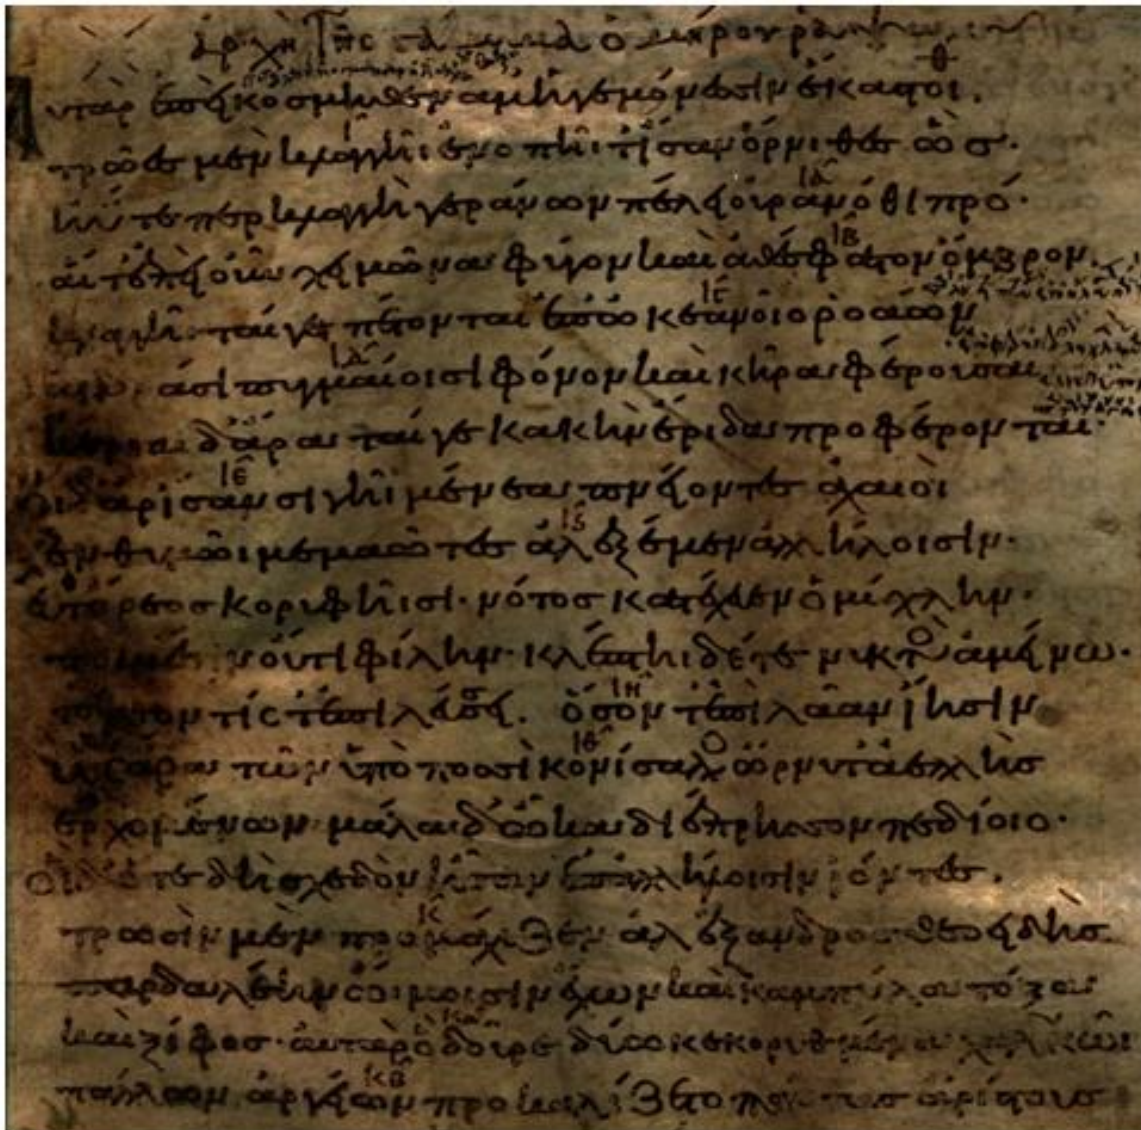 ἀρχὴ τῆς
Αυτὰρ ἐπεὶ κόσμηθεν ἅμ' ἡγεμόνεσιν ἕκαστοι.
τρῶες μὲν κλαγγῆι ἐνοπῆι τ' ἴσαν ὄρνιθες ὣς.
ἠΰτε περ κλαγγὴ γεράνων πέλει οὐρανόθι πρό.
αἵ τ' ἐπεὶ οὖν χειμῶνα φύγον καὶ ἀθέσφατον ὄμβρον.
κλαγγῆι ταί γε πέτονται ἐπ' ὠκεανοῖο ῥοάων
ἀνδράσι πυγμαίοισι φόνον καὶ κῆρα φέρουσαι
ἠέριαι δ' ἄρα ταί γε κακὴν ἔριδα προφέρονται.
Οἱ δ' ἄρ' ἴσαν σιγῆι μένεα πνείοντες ἀχαιοὶ
ἐν θυμῶι μεμαῶτες ἀλεξέμεν ἀλλήλοισιν.
εὖτ' ὄρεος κορυφῆισι. νότος κατέχευεν ὀμίχλην.
ποιμέσιν οὔτι φίλην. κλέπτηι δέ τε νυκτὸς ἀμείνω.
τόσσον τίς τ' ἐπιλεύσσει. ὅσον τ' ἐπὶ λᾶαν ἵησιν
ὣς ἄρα τῶν ὑπὸ ποσσὶ κονίσαλος ὤρνυτ' ἀελλὴς
ἐρχομένων. μάλα δ' ὦκα διέπρησσον πεδίοιο.
Οἱ δ' ὅτε δὴ σχεδὸν ἦσαν ἐπ' ἀλλήλοισιν ἰόντες.
τρωσὶν μὲν προμάχιζεν ἀλέξανδρος θεοειδὴς
παρδαλέην ὤμοισιν ἔχων καὶ καμπύλα τόξα
καὶ ξίφος. αὐτὰρ ὁ δοῦρε δύω κεκορυθμένα χαλκῶι
πάλλων ἀργείων προκαλίζετο πάντας ἀρίστους